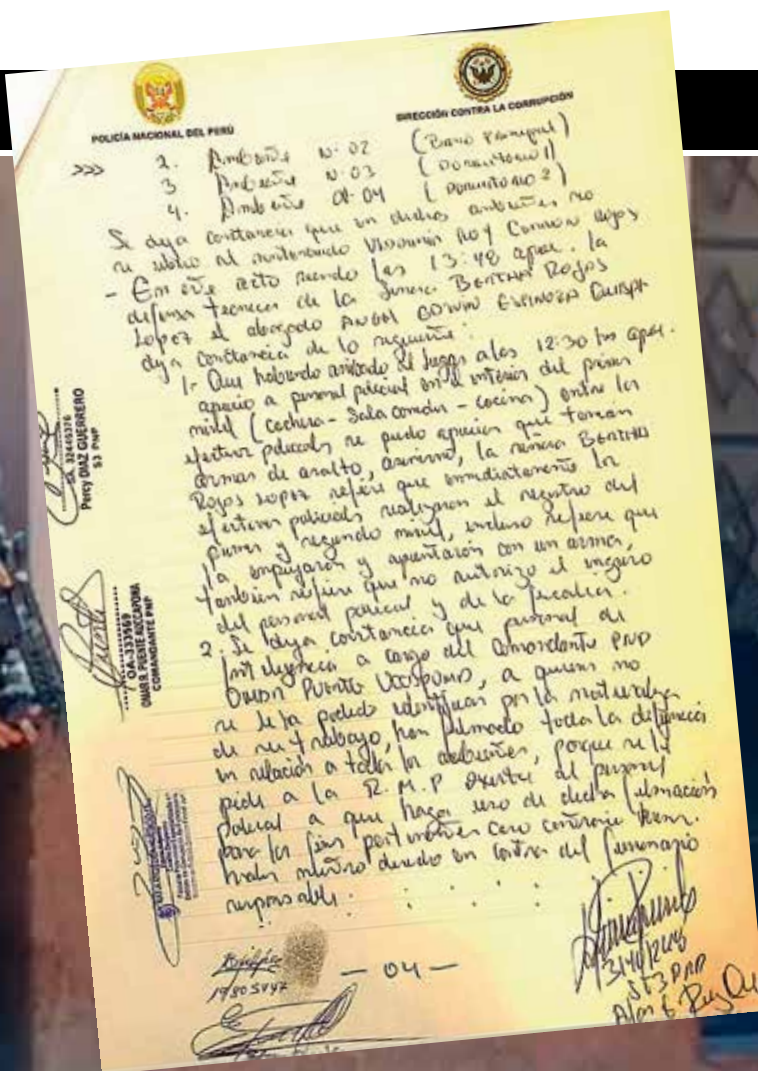 POLICÍA NACIONAL DEL PERÚ
DIRECCIÓN CONTRA LA CORRUPCIÓN
>>> 2. Ambiente N° 02 (Baño Principal)
3 Ambiente N° 03 (Dormitorio 1)
4. Ambiente N° 04 (Dormitorio 2)
Se deja constancia que en dichos ambientes no
se ubicó al Vladimir Roy Cerron Rojos
- En este acto siendo las 13:48 aprox. la
defensa tecnica de la Senora BERTHA ROJOS
Lopez el abogado ANGEL EDWIN ESPINOZA
deja constancia de lo siguiente:
1- Que habiendo arribado al lugar a las 12:30 hrs aprox.
aprecio a personal policial en el interior del primer
nivel (cochera - Sala comedor - cocina) entre los
efectivos policiales se pudo apreciar que tomān
armas de asalto, asimismo, la señora BERTHA
Rojos Lopez refiere que inmediatamente los
efectivos policiales realizaron el registro del
primer y segundo nivel, incluso refiere que
la empujaron y apuntaron con un arma,
tambien refiere que no autorizo el ingreso
del personal policial y de la fiscalia.
2. Se deja constancia que personal de
inteligencia a cargo del Comandante PNP
PUENTE, a quienes no
se le ha podido identificar por la naturaleza
de su trabajo, han filmado toda la diligencia
en relación a todos los ambientes, porque se le
pide a la R.M.P al personal
policial a que haga uso de dicha filmación
para los fines pertinentes caso contrario
nuestro derecho en contra del funcionario
responsable.
- 04 -
Percy DIAZ GUERRERO
S3 PNP
OA-333569
OMAR R. PUENTE
COMANDANTE PNP
ST3 PNP